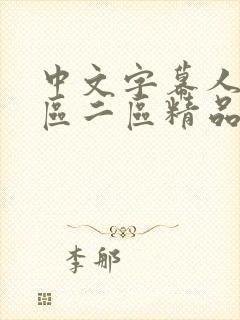 中文字幕人
區二區精品
李郍